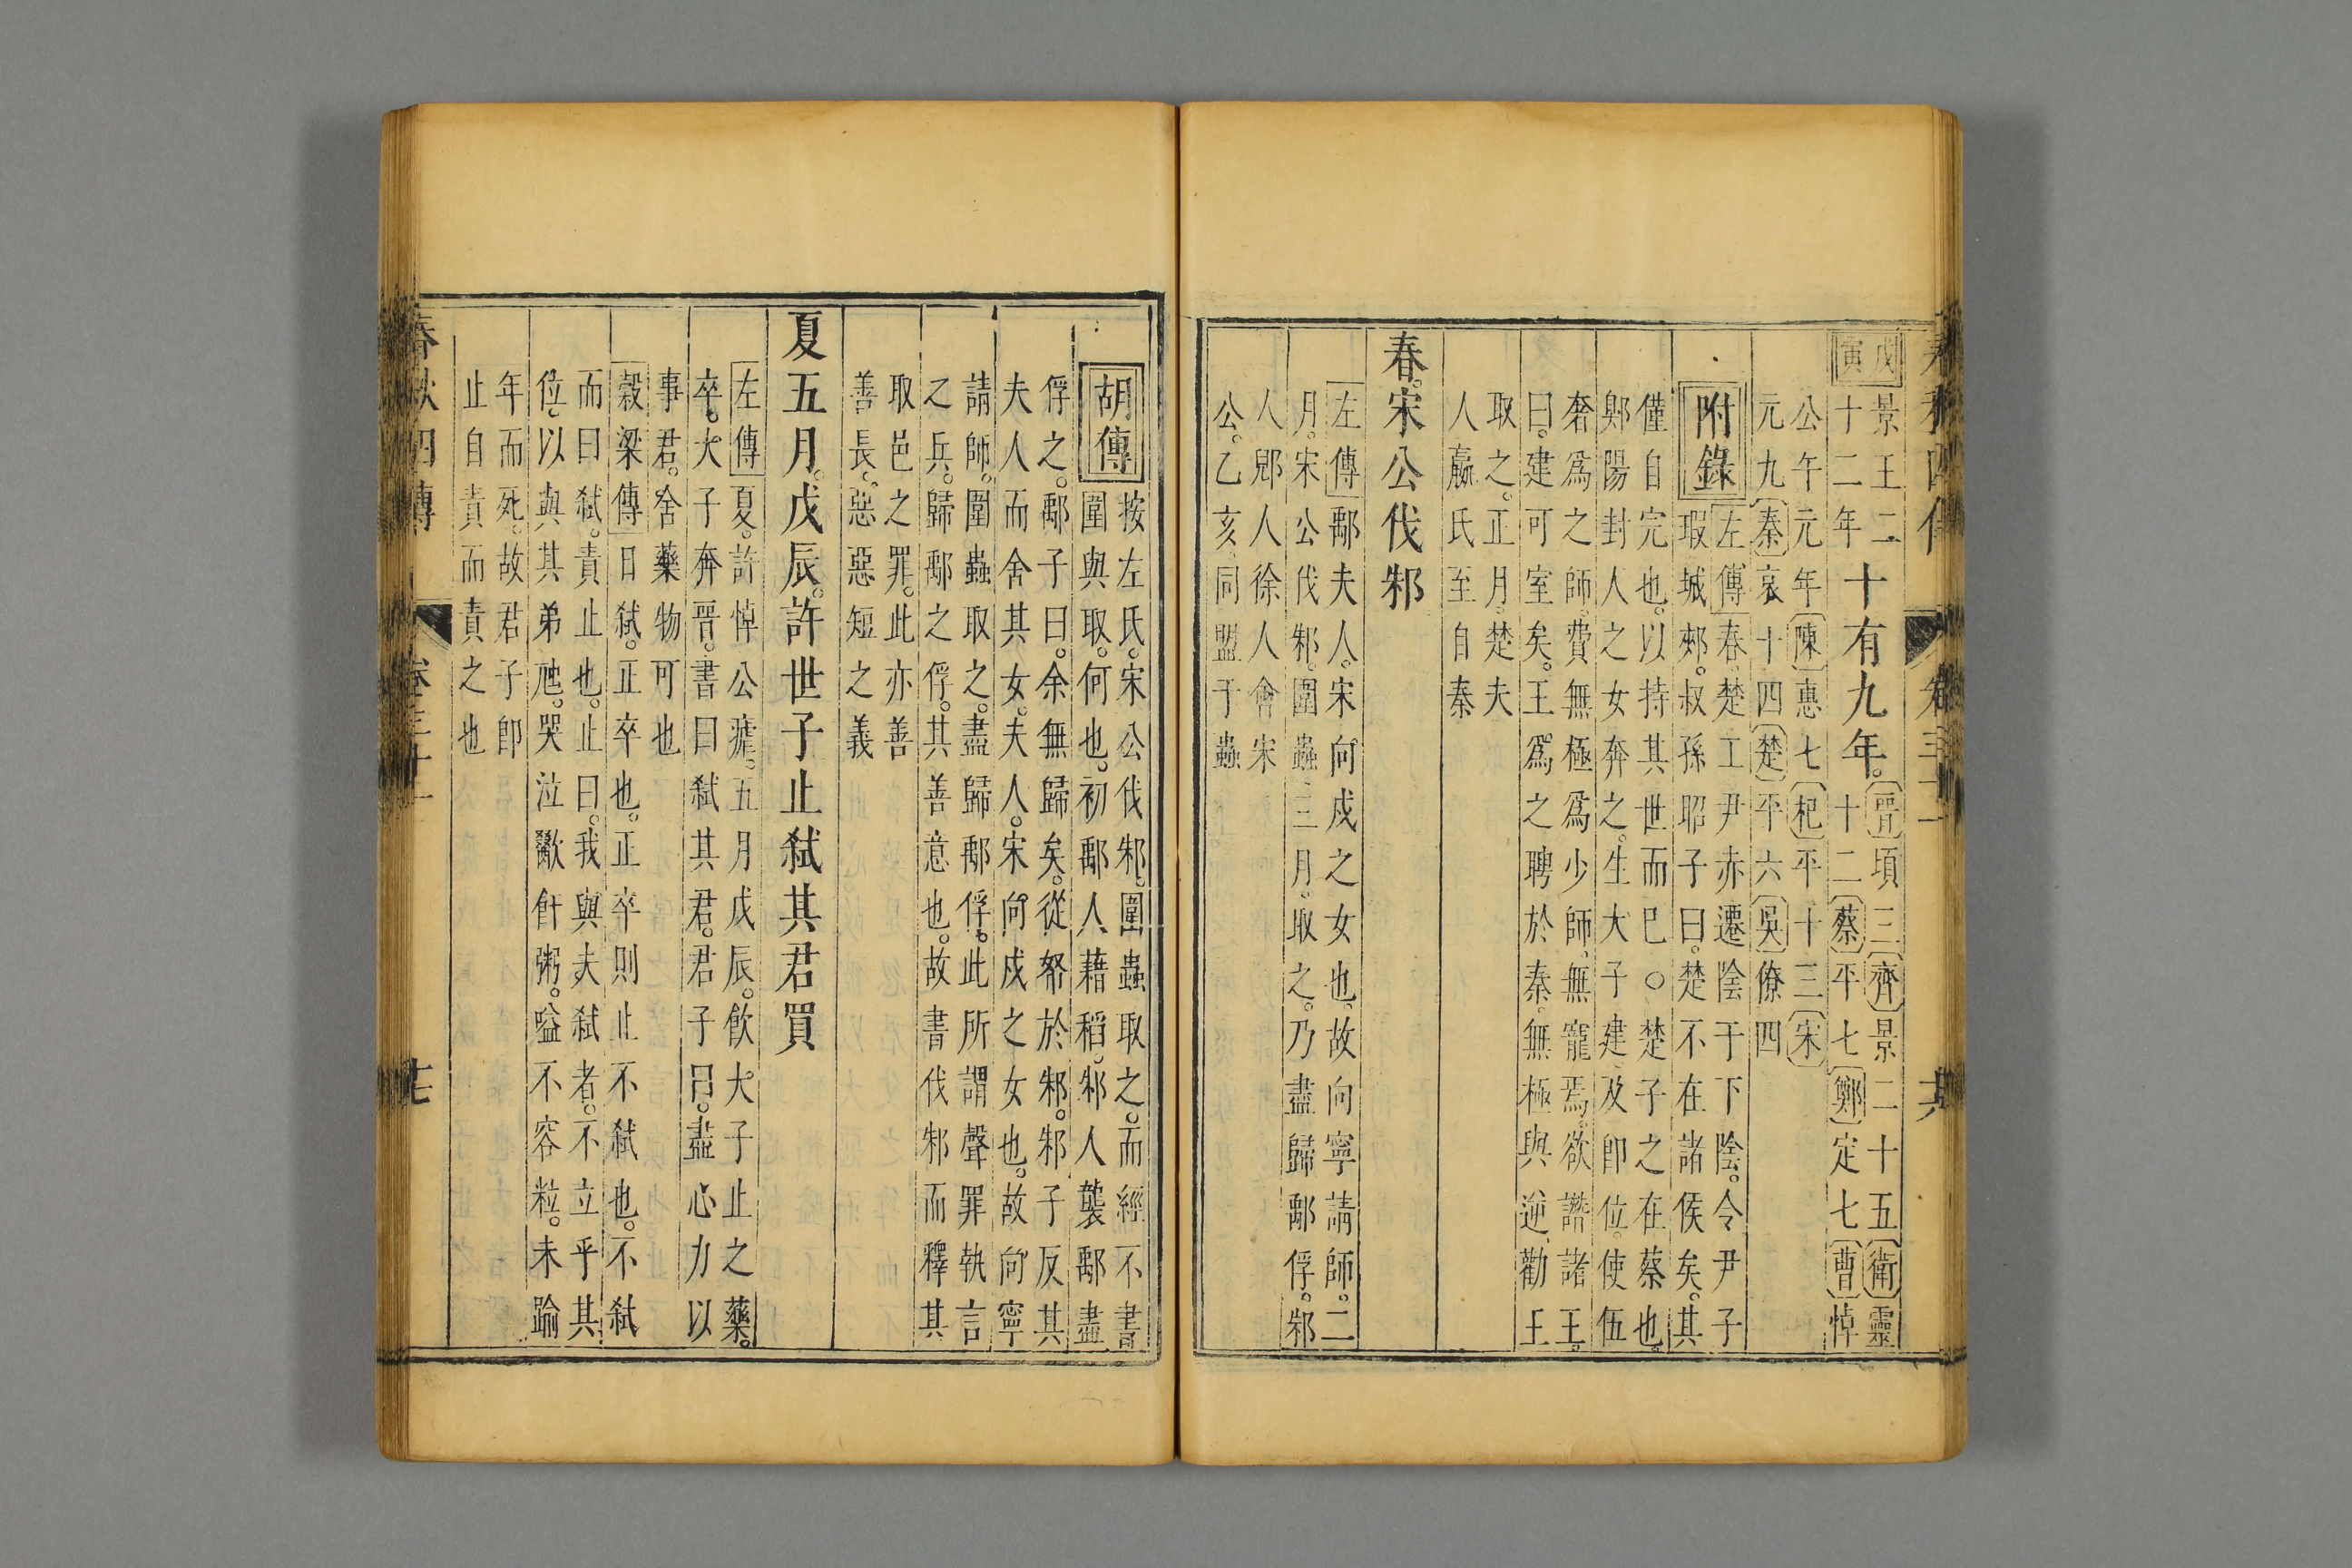 春秋四傳 卷三十一 十六
戊寅
景王二
十二年
十有九年。
晉頃三齊景二十五衛靈
十二蔡平七鄭定七曹悼
公午元年陳惠七杞平十三宋
元九秦哀十四楚平六吳僚四
附錄
左傳春。楚工尹赤遷陰于下陰。令尹子
瑕城郟。叔孫昭子曰。楚不在諸侯矣。其
僅自完也。以持其世而已○楚子之在蔡也。
鄭陽封人之女奔之。生大子建。及即位。使伍
奢為之師。費無極為少師。無寵焉。欲譖諸王。
曰。建可室矣。王為之聘於秦。無極與逆。勸王
取之。正月。楚夫
人嬴氏至自秦
春。宋公伐邾
左傳鄅夫人。宋向戌之女也。故向寧請師。二
月。宋公伐邾。圍蟲。三月。取之。乃盡歸鄅俘。邾
人郳人徐人會宋
公。乙亥。同盟于蟲
胡傳
按左氏。宋公伐邾。圍蟲取之。而經不書
圍與取。何也。初鄅人藉稻。邾人襲鄅盡
俘之。鄅子曰。余無歸矣。從帑於邾。邾子反其
夫人而舍其女。夫人。宋向戌之女也。故向寧
請師。圍蟲取之。盡歸鄅俘。此所謂聲罪執言
之兵。歸鄅之俘。其善意也。故書伐邾而釋其
取邑之罪。此亦善
善長。惡惡短之義
夏五月。戊辰。許世子止弒其君買
左傳夏。許悼公瘧。五月戊辰。飲大子止之藥。
卒。大子奔晉。書曰弒其君。君子曰。盡心力以
事君。舍藥物可也
穀梁傳日弒。正卒也。正卒則止不弒也。不弒
而曰弒。責止也。止曰。我與夫弒者。不立乎其
位。以與其弟虺。哭泣歠飦粥。嗌不容粒。未踰
年而死。故君子即
止自責而責之也
春秋四傳 卷三十一 十七